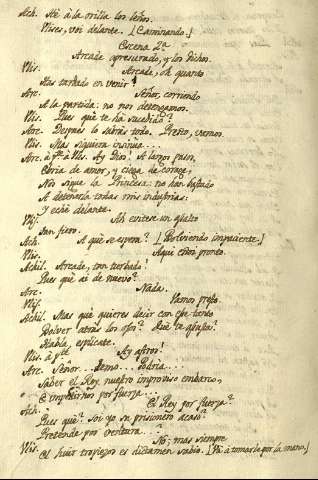 Ach. Ate à la orilla los leños.
Ulises, voi delante. [Caminando.]
Escena 2ª
Arcade apresurado, y los Dichos.
Ulis. Arcade, oh quanto
Has tardado en venir!
Arc. Señor, corriendo
A la partida: no nos detengamos.
Ulis. Pues què te ha sucedido?
Arc. Despues lo sabràs todo. Presto, vamos.
Ulis. Mas siquiera insinua....
Arc. à pte. à Ulis. Ay Dios! A largos pasos,
Ebria de amor, y ciega de corage,
Nos sigue la Princesa: no han bastado
A detenerla todas mis industrias:
Y eché delante.
Uli. Ah evitese un asalto
Tan fiero.
Ach. A què se espera? [Volviendo impaciente.]
Ulis. Aqui estoi pronto.
Achil. Arcade, tan turbado!
Pues què ai de nuevo?
Arc. Nada.
Ulis. Vamos presto.
Achil. Mas què quieres decir con ese tanto
Volver atràs los ojos? Què te asusta?
Habla, esplicate.
Ulis. à pte. Ay astros!
Arc. Señor.. Temo... Podria...
Saber el Rey nuestro improviso embarco,
E impedirnos por fuerza...
Ach. El Rey por fuerza?
Pues què? Soi yo su prisionero acaso?
Pretende por ventura...?
Ulis. No; mas siempre
El huir tropiezos es dictamen sabio. [Và à tomarle por la mano.]